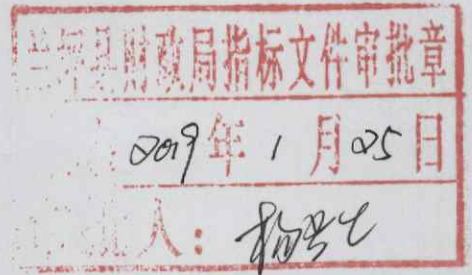 县财政局指标文件审批章
2019年1月25日
人：杨